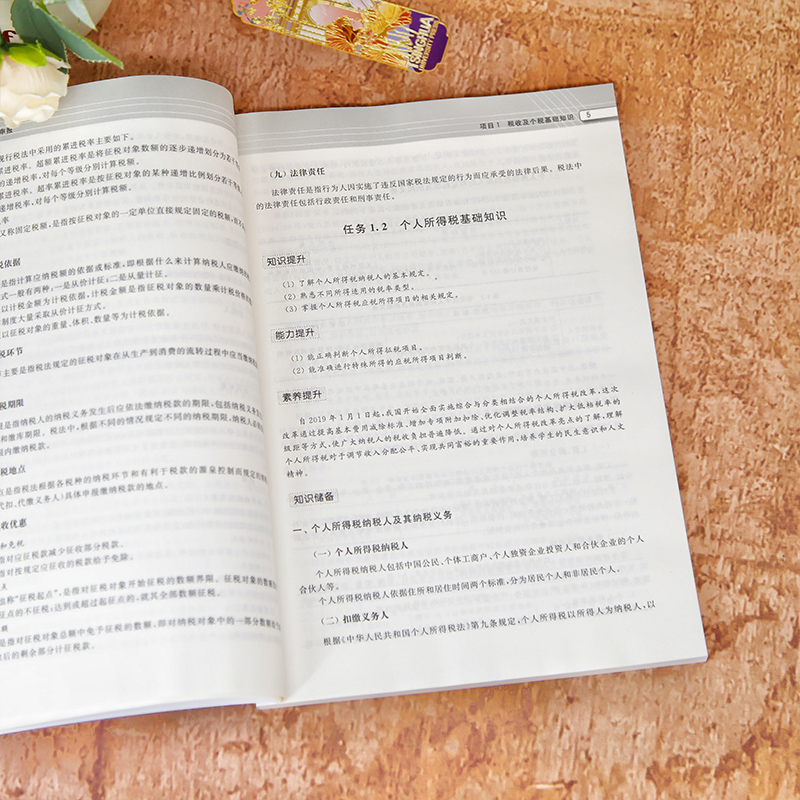 现行税法中采用的累进税率主要如下。
累进税率、超额累进税率是将征税对象数额的逐步递增划分为若干等
的递增税率,对每个等级分别计算税额。
累进税率、超率累进税率是按征税对象的某种递增比例划分若干等
递增税率,对每个等级分别计算税额。
税率
又称固定税额,是指按征税对象的一定单位直接规定固定的税额,
税依据
是指计算应纳税额的依据或标准,即根据什么来计算纳税人应缴
式一般有两种:一是从价计征;二是从量计征。
以计税金额为计税依据,计税金额是指征税对象的数量乘计税价格
制度大量采取从价计征方式。
以征税对象的重量、体积、数量等为计税依据。
税环节
主要是指税法规定的征税对象在从生产到消费的流转过程中应当缴
税期限
是指纳税人的纳税义务发生后应依法缴纳税款的期限,包括纳税义务
和缴库期限。税法中,根据不同的情况规定不同的纳税期限,纳税人必
内缴纳税款。
税地点
是指税法根据各税种的纳税环节和有利于税款的源泉控制而规定的
代扣、代缴义务人)具体申报缴纳税款的地点。
收优惠
和免税
指对应征税款减少征收部分税款。
指对按规定应征收的税款给予免除。
也称“征税起点”,是指对征税对象开始征税的数额界限。征税对象的数
征点的不征税;达到或超过起征点的,就其全部数额征税。
是指对征税对象总额中免予征税的数额,即对纳税对象中的一部分数额
后的剩余部分计征税款。
TSINGHUA
UNIVERSITY PRESS
项目1 税收及个税基础知识 5
(九) 法律责任
法律责任是指行为人因实施了违反国家税法规定的行为而应承受的法律后果。税法中
的法律责任包括行政责任和刑事责任。
任务1.2 个人所得税基础知识
知识提升
(1) 了解个人所得税纳税人的基本规定。
(2) 熟悉不同所得适用的税率类型。
(3) 掌握个人所得税应税所得项目的相关规定。
能力提升
(1) 能正确判断个人所得征税项目。
(2) 能准确进行特殊所得的应税所得项目判断。
素养提升
自2019年1月1日起,我国开始全面实施综合与分类相结合的个人所得税改革,这次
改革通过提高基本费用减除标准、增加专项附加扣除、优化调整税率结构、扩大低档税率的
级距等方式,使广大纳税人的税收负担普遍降低。通过对个人所得税改革亮点的了解,理解
个人所得税对于调节收入分配公平、实现共同富裕的重要作用,培养学生的民生意识和人文
精神。
知识储备
一、个人所得税纳税人及其纳税义务
(一) 个人所得税纳税人
个人所得税纳税人包括中国公民、个体工商户、个人独资企业投资人和合伙企业的个人
合伙人等。
个人所得税纳税人依据住所和居住时间两个标准,分为居民个人和非居民个人。
(二) 扣缴义务人
根据《中华人民共和国个人所得税法》第九条规定,个人所得税以所得人为纳税人,以